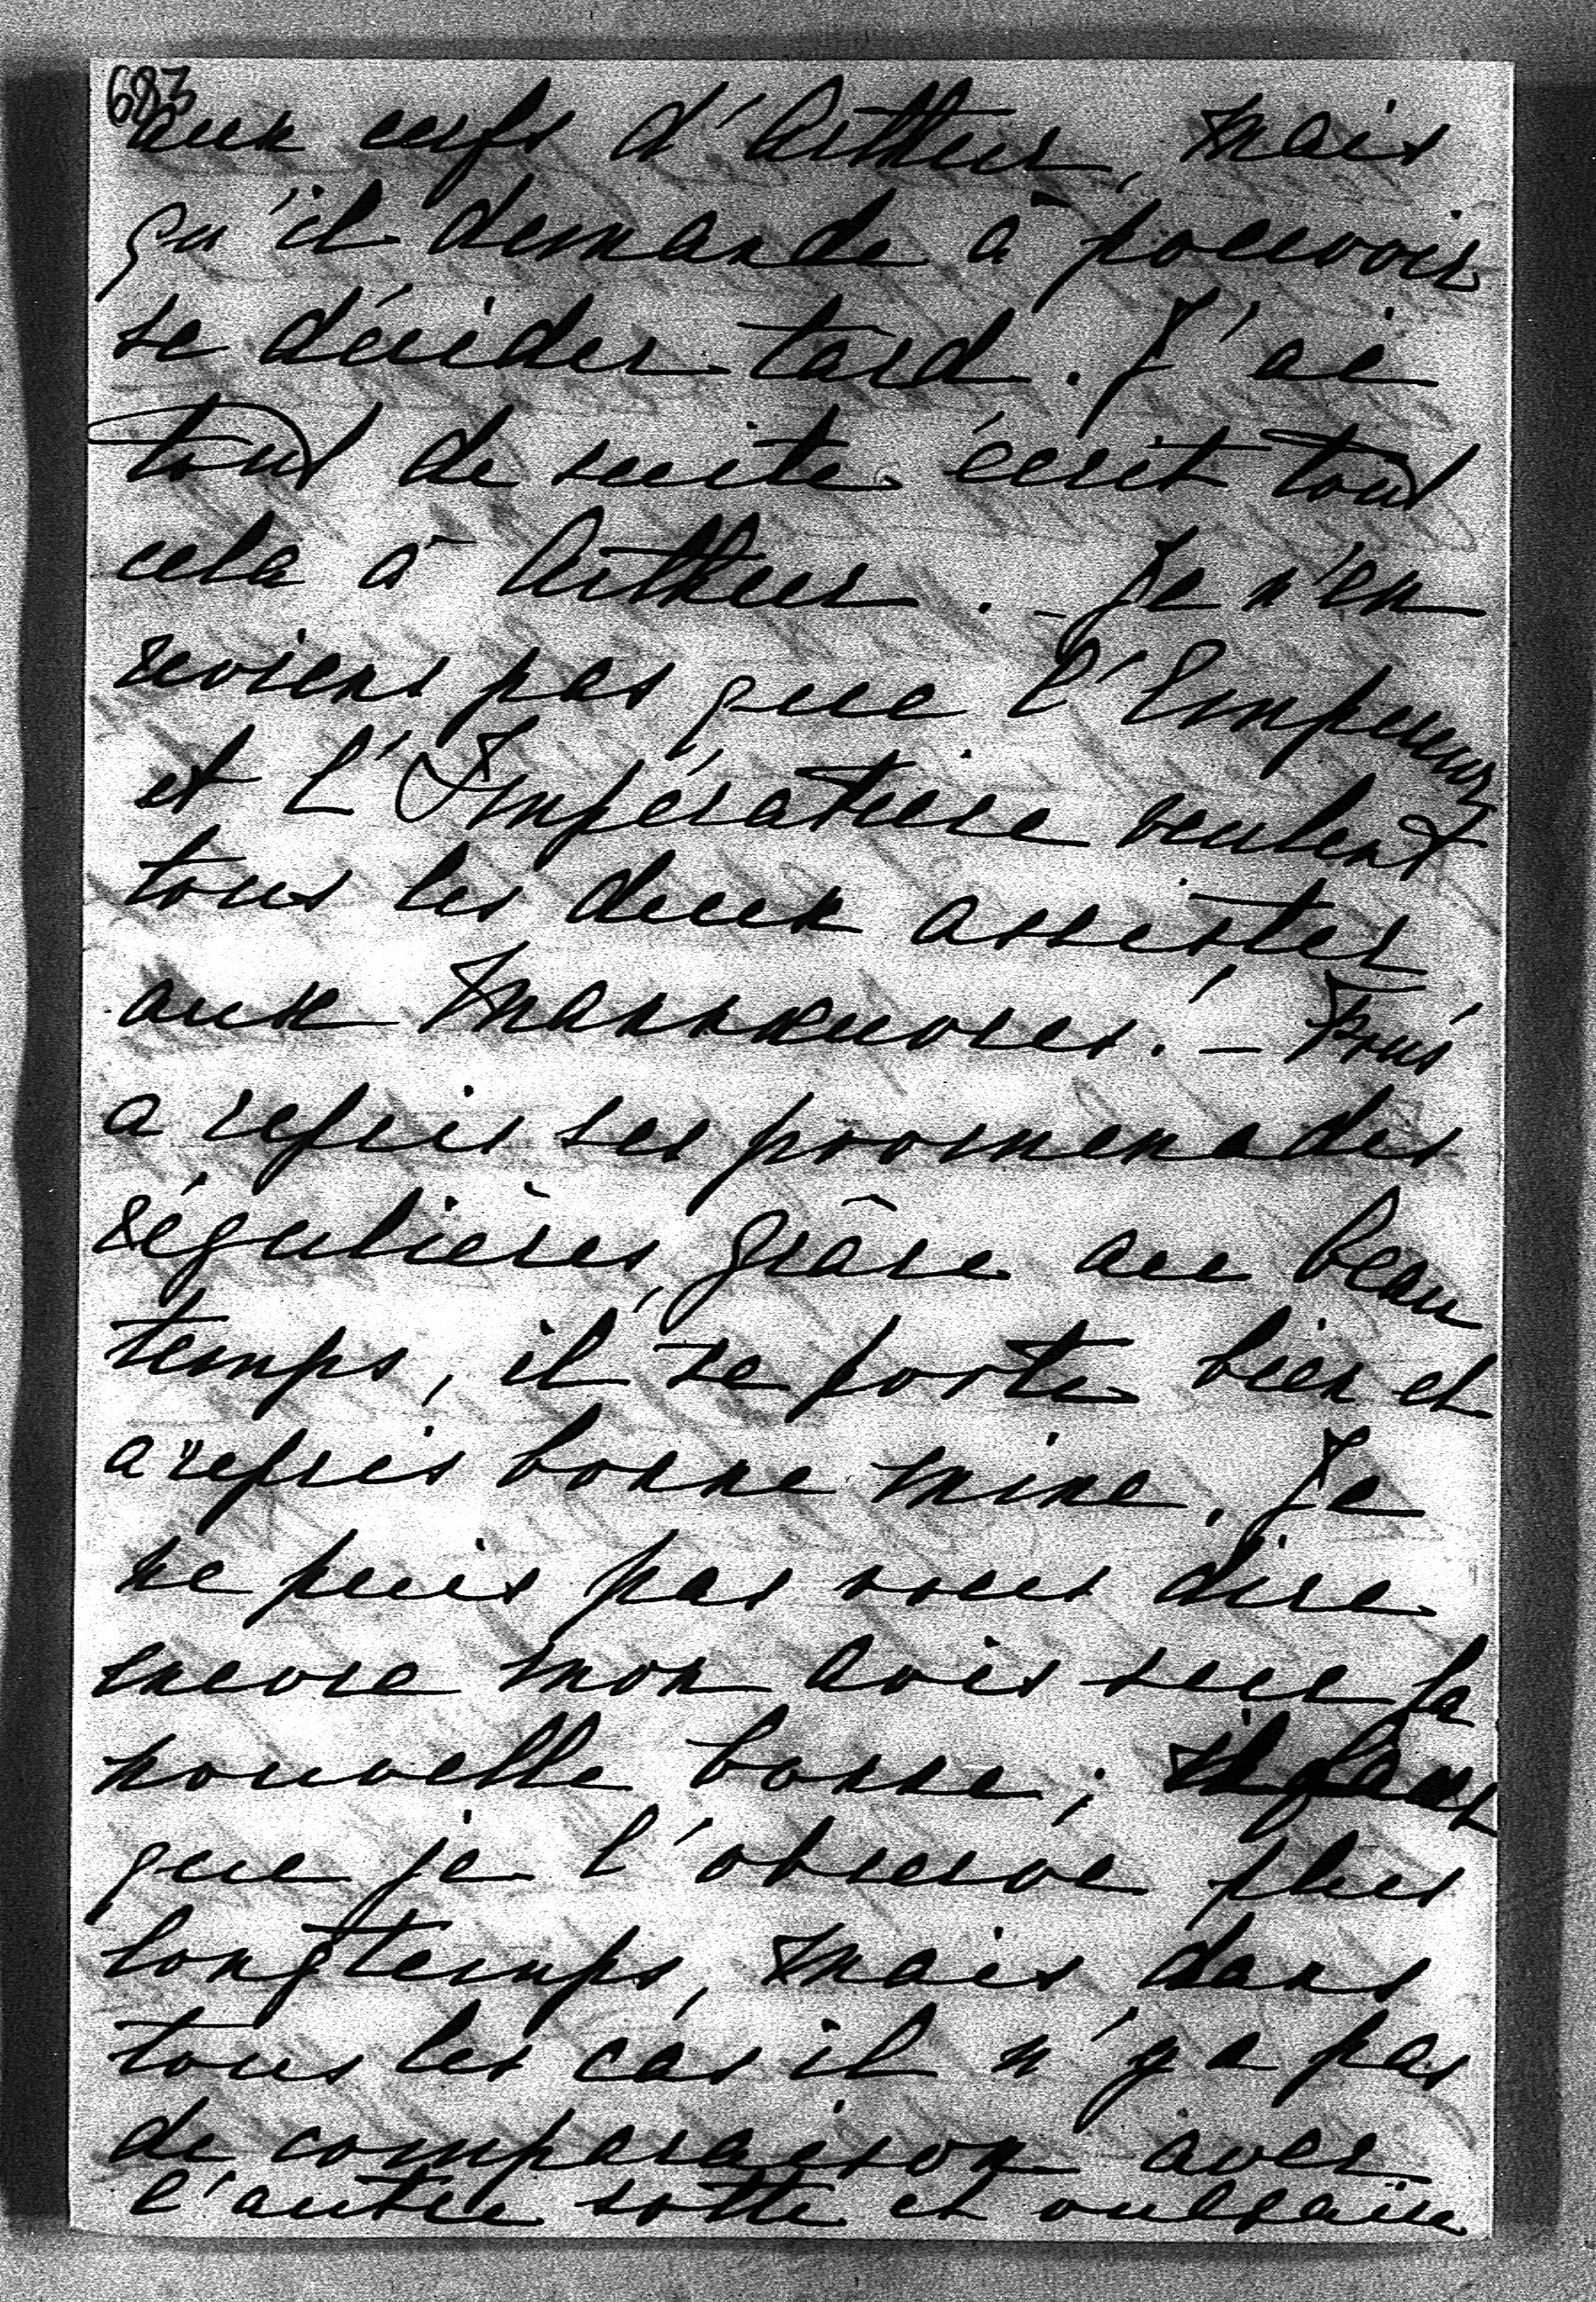 683
aux cerfs d'Arthur, mais
qu'il demande à pouvoir
se décider tard. J'ai
tout de suite écrit tout
cela à Arthur. - Je n'en
reviens pas que l'Empereur
et l'Impératrice veulent
tous les deux assister
aux manœuvres. -
a repris ses promenades
régulières, grâce au beau
temps, il se porte bien et
a repris bonne mine. Je
ne puis pas vous dire
encore mon avis sur la
nouvelle bonne; il faut
que je l'observe plus
longtemps, mais dans
tous les cas il n'y a pas
de comparaison avec
l'autre sotte et vulgaire